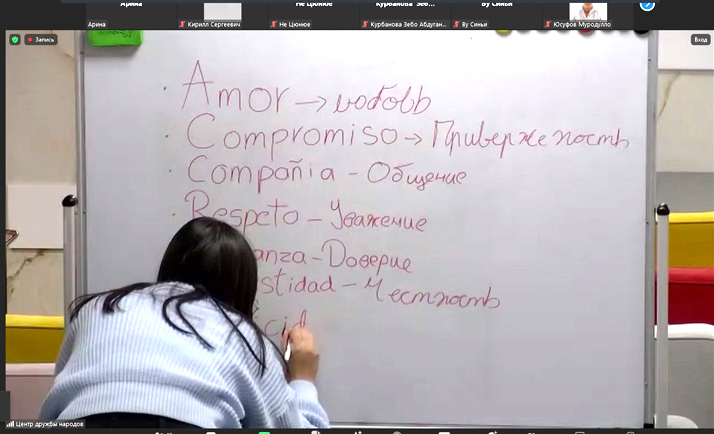 Арина
Кирилл Сергеевич
Не Цюнюе
Курбанова Зебо Абдуган...
Ву Синьи
Юсуфов Муродулло
Запись
Вход
Amor → любовь
Compromiso → Приверженость
Compañia - Общение
Respeto - Уважение
anza - Доверие
stidad - Честность
icid
Центр дружбы народов